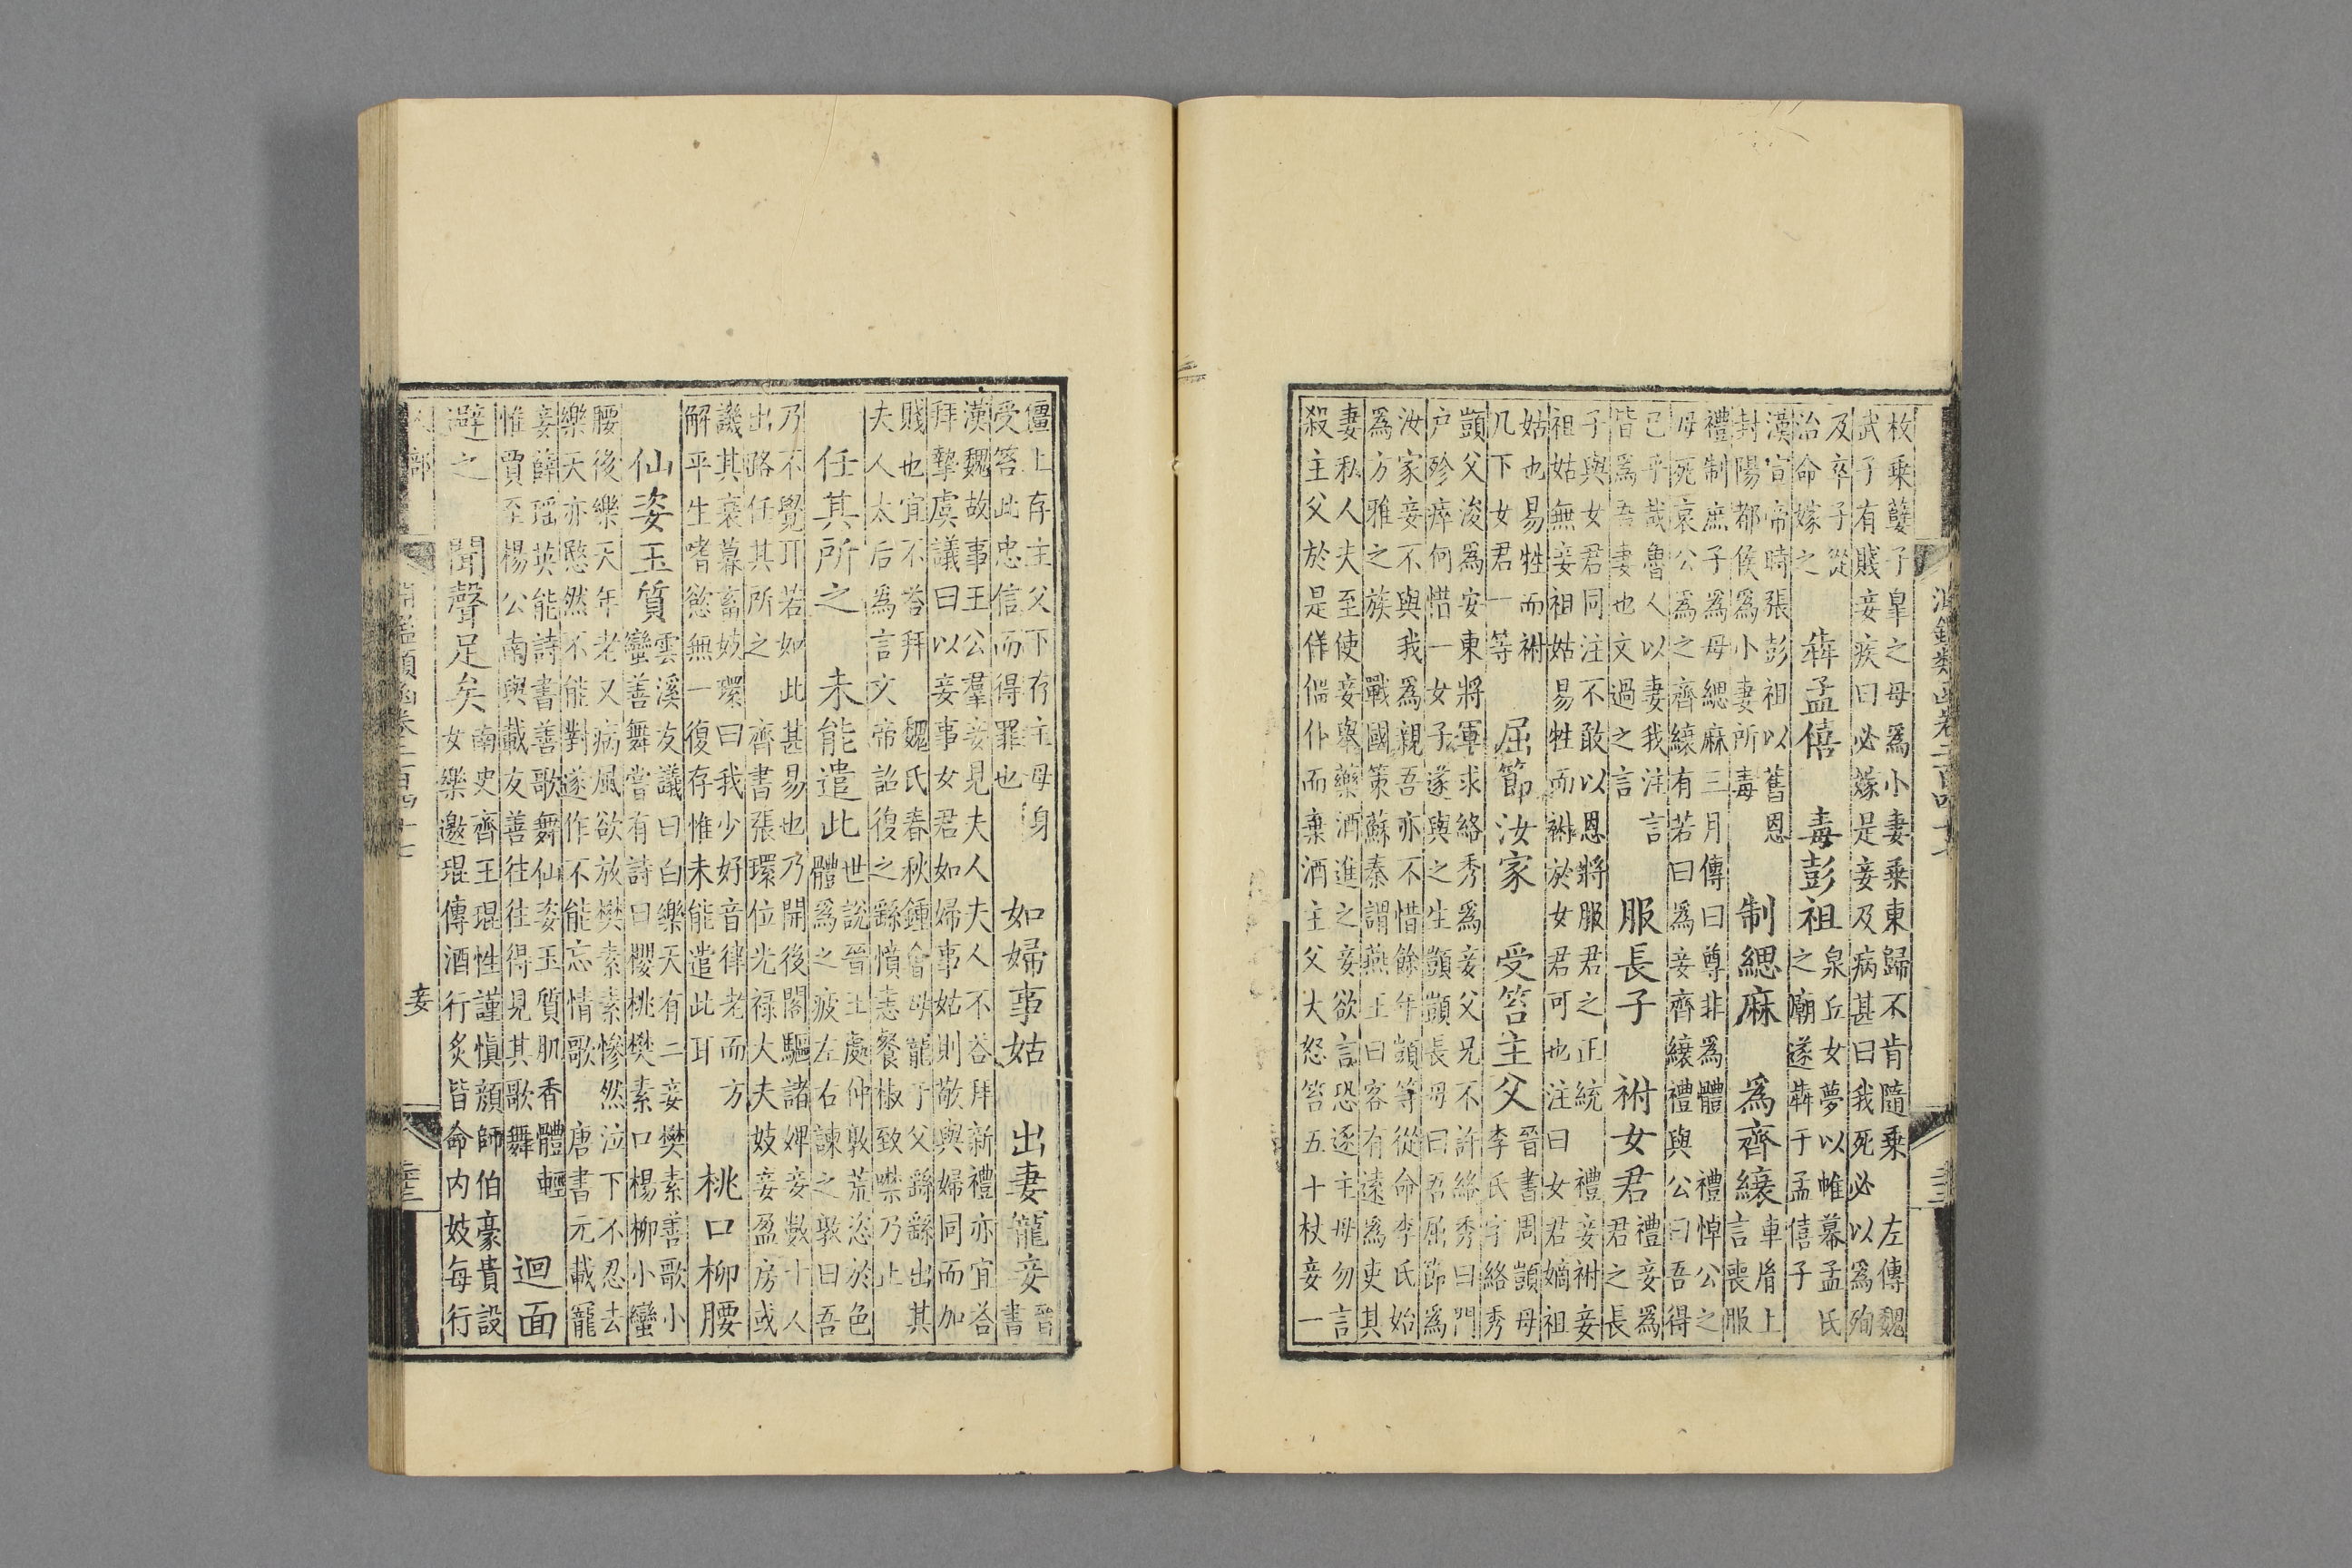 淵鑑類函卷二百四十七
枚乗孽子皐之母爲小妻乗東歸不肯隨乗 左傳魏
武子有賤妾疾曰必嫁是妾及病甚曰我死必以爲殉
及卒子從
治命嫁之
犇孟僖 毒彭祖
泉丘女夢以帷幕孟氏
之廟遂犇于孟僖子
漢宣帝時張彭祖以舊恩
封陽都侯爲小妻所毒
制緦麻 爲齊縗
車胤上
言喪服
禮制庶子爲母緦麻三月傳曰尊非爲體 禮悼公之
母死哀公爲之齊縗有若曰爲妾齊縗禮與公曰吾得
已乎哉魯人以妻我注言
皆爲吾妻也文過之言
服長子 祔女君
禮妾爲
君之長
子與女君同注不敢以恩將服君之正統 禮妾祔妾
祖姑無妾祖姑易牲而祔於女君可也注曰女君嫡祖
姑也易牲而祔
几下女君一等
屈節汝家 受笞主父
晉書周顗母
李氏字絡秀
顗父浚爲安東將軍求絡秀爲妾父兄不許絡秀曰門
户殄瘁何惜一女子遂與之生顗顗長母曰吾屈節爲
汝家妾不與我爲親吾亦不惜餘年顗等從命李氏始
爲方雅之族 戰國策蘇秦謂燕王曰客有遠爲吏其
妻私人夫至使妾舉藥酒進之妾欲言恐逐主母勿言
殺主父於是佯僵仆而棄酒主父大怒笞五十杖妾一
僵上存主父下存主母身
受笞此忠信而得罪也
如婦事姑 出妻寵妾
晉
書
漢魏故事王公羣妾見夫人夫人不荅拜新禮亦宜荅
拜摯虞議曰以妾事女君如婦事姑則敬與婦同而加
賤也宜不荅拜 魏氏春秋鍾會母寵于父繇繇出其
夫人太后爲言文帝詔復之繇憤恚餐椒致噤乃止
任其所之 未能遣此
世說晉王處仲敦荒恣於色
體爲之疲左右諫之敦曰吾
乃不覺耳若如此甚易也乃開後閤驅諸婢妾數十人
出路任其所之 齊書張環位光禄大夫妓妾盈房或
譏其衰暮畜妓環曰我少好音律老而方
解平生嗜慾無一復存惟未能遣此耳
桃口柳腰
仙姿玉質
雲溪友議曰白樂天有二妾樊素善歌小
蠻善舞嘗有詩曰櫻桃樊素口楊柳小蠻
腰後樂天年老又病風欲放樊素素慘然泣下不忍去
樂天亦愍然不能對遂作不能忘情歌 唐書元載寵
妾薛瑶英能詩書善歌舞仙姿玉質肌香體輕
惟賈至楊公南與載友善往往得見其歌舞
迴面
避之 聞聲足矣
南史齊王琨性謹慎顔師伯豪貴設
女樂邀琨傳酒行炙皆命内妓每行
人部
淵鑑類函卷二百四十七
妾